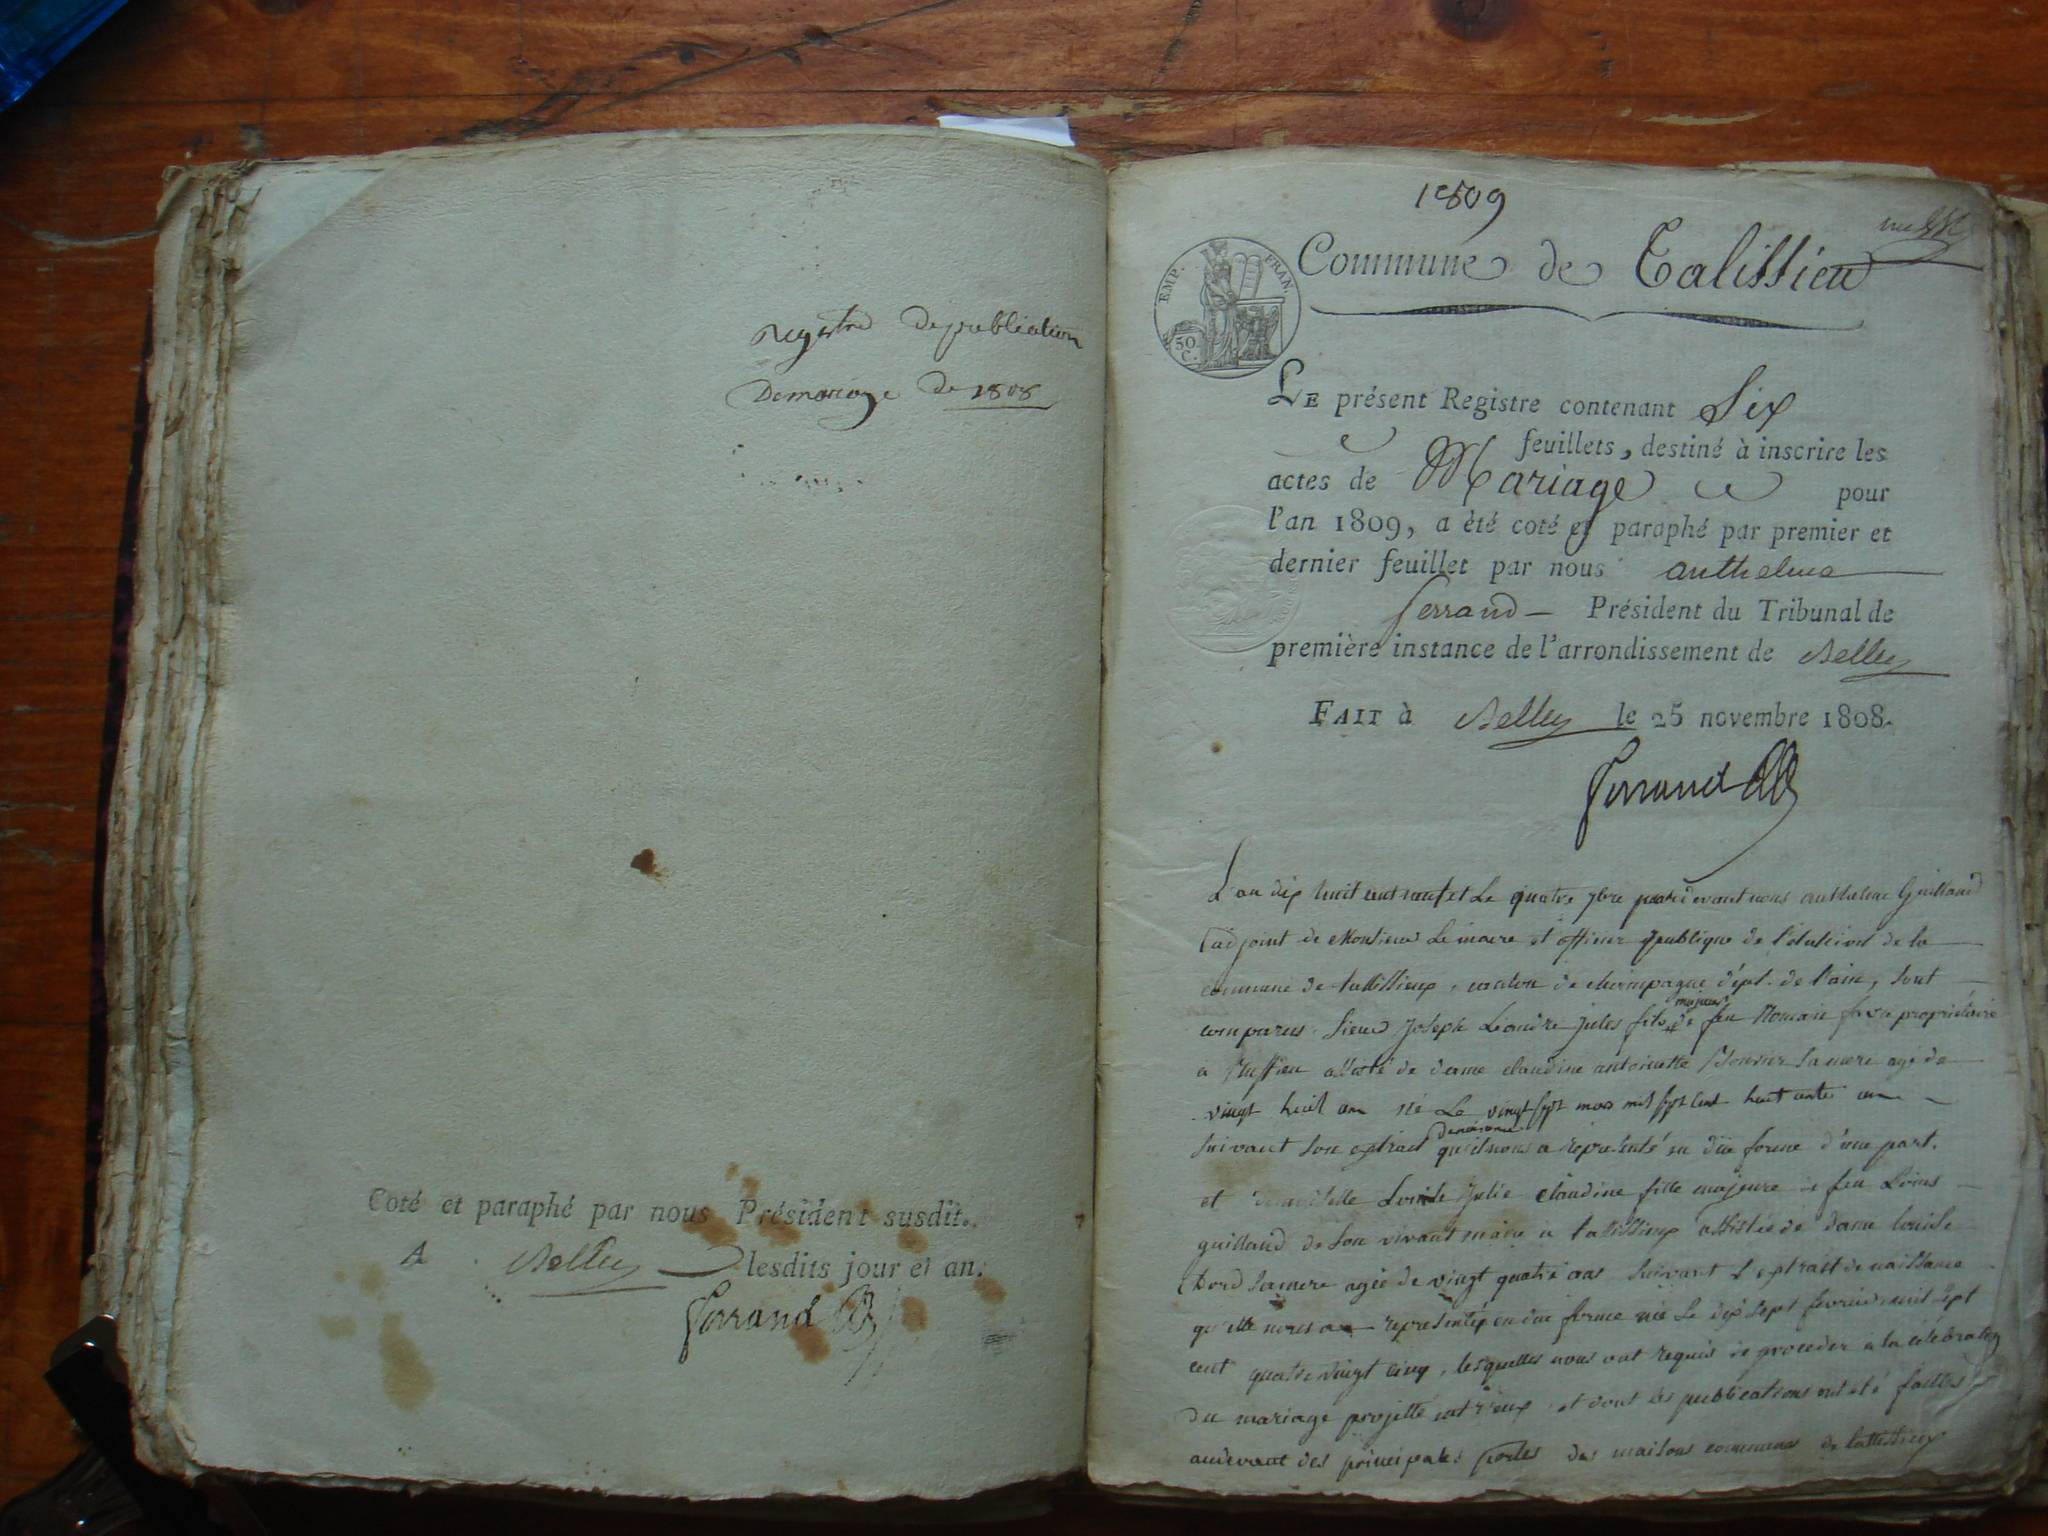 Registre de publication
De mariage de 1808
Coté et paraphé par nous Président susdit.
A Belley lesdits jour et an.
Ferrand
1809
Commune de Talissieu
EMP. FRAN.
50 C.
LE présent Registre contenant Six
feuillets, destiné à inscrire les
actes de Mariage pour
l'an 1809, a été coté et paraphé par premier et
dernier feuillet par nous anthelme
ferrand — Président du Tribunal de
première instance de l'arrondissement de Belley
FAIT à Belley le 25 novembre 1808.
Ferrand
L'an dix huit cent neuf et Le quatre 7bre pardevant nous anthelme Guilland
adjoint de Monsieur Le maire et officier publique de l'état civil de la
commune de tallissieux, canton de champagne dépt. de l'ain, sont
comparus Sieur Joseph Léandre jules fils majeur de feu Romain propriétaire
a assisté de dame claudine antoinette sa mere agé de
vingt huit an né Le vingt sept mars mil sept cent huit ante un
suivant son extrait de naissance qu'il nous a représenté en düe forme d'une part.
et demoiselle Louise Julie claudine fille majeure de feu Louis
guilland de son vivant maire a tallissieux assistée de dame louise
sa mere agée de vingt quatre ans suivant l'extrait de naissance
qu'elle nous a représentée en due forme née Le dix sept février mil sept
cent quatre vingt cinq, lesquelles nous ont requis de proceder a la célébration
du mariage projetté entr'eux et dont les publications ont été faittes
audevant des principales portes des maisons communes de tallissieux